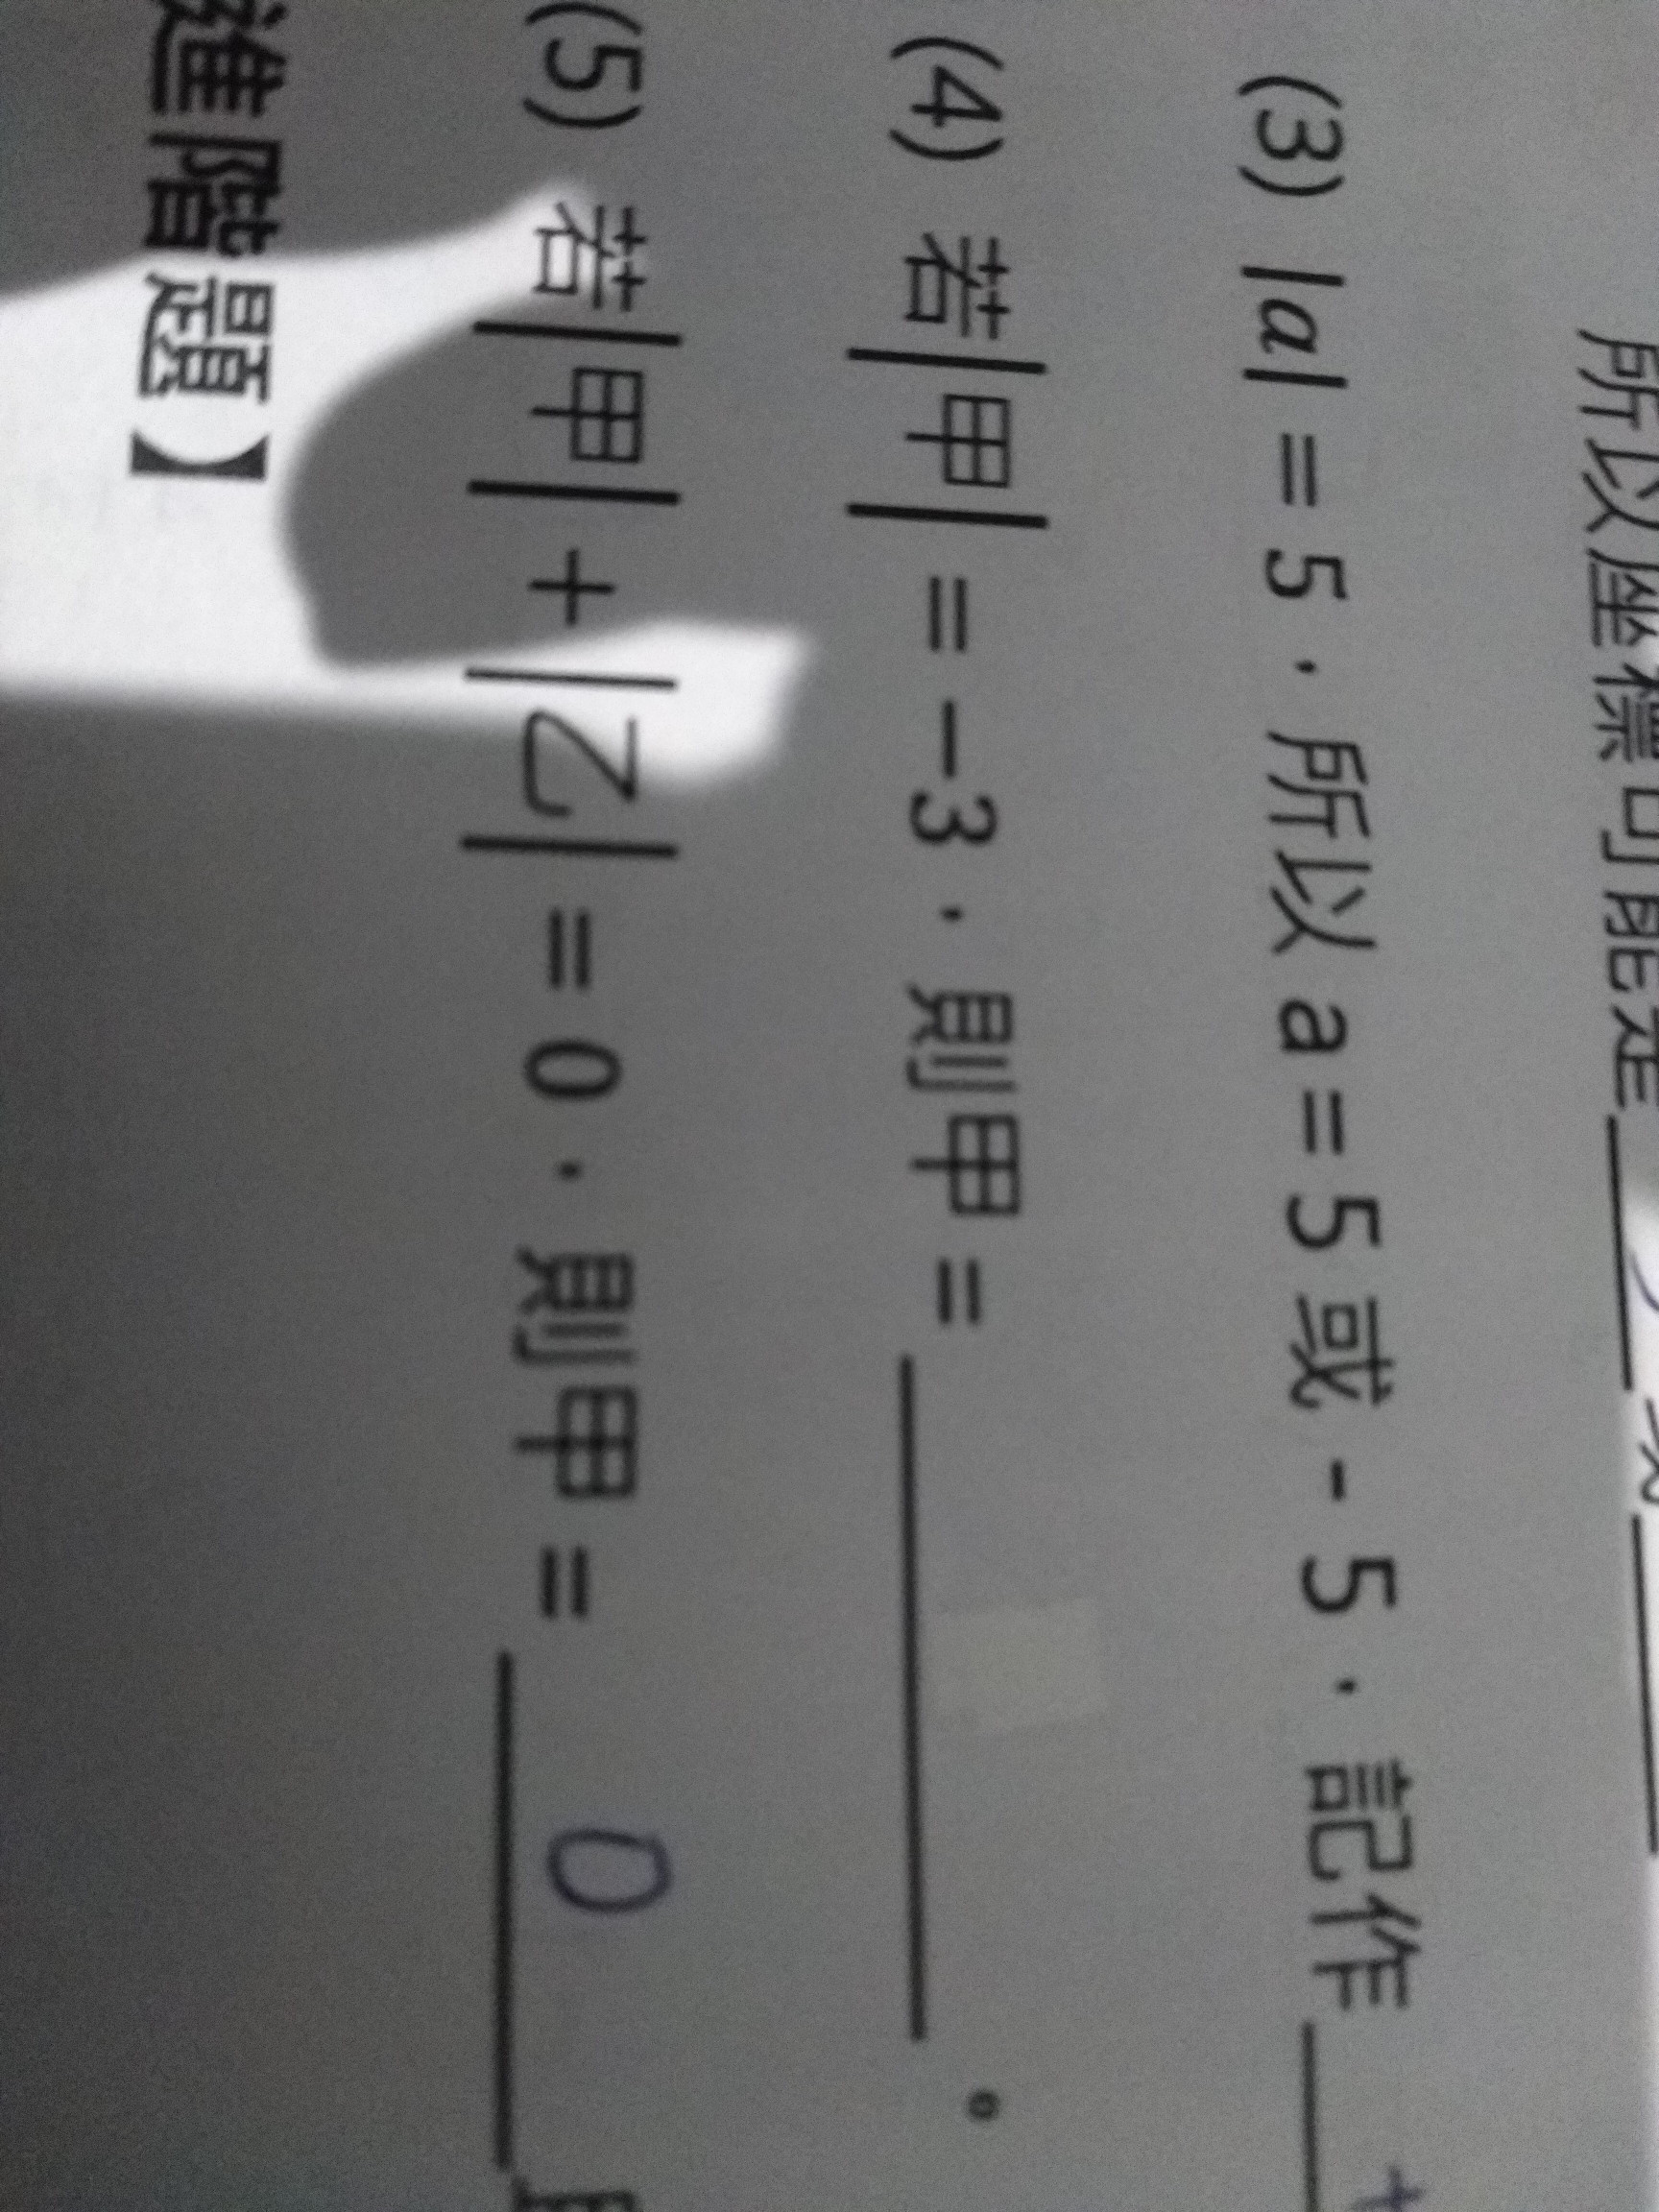 所以座標可能是
(3) |a| = 5，所以 a = 5 或 - 5，記作
(4) 若|甲| = −3，則甲 = ＿＿＿。
(5) 若|甲| + |乙| = 0，則甲 = 0
進階題】